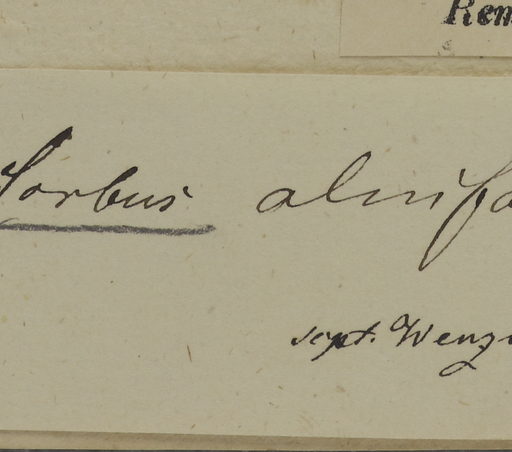 Rem
Sorbus alnifo
sept. Wenz